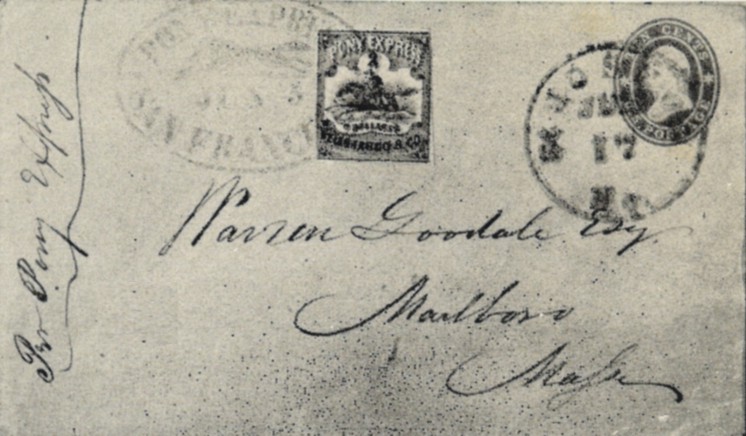 PONY EXPRESS
JUN
SAN FRANCISCO
PONY EXPRESS
2 DOLLARS
WELLS FARGO & CO.
TEN CENTS
U.S. POSTAGE
ST JOSEPH
JUN
17
MO
Per Pony Express
Warren Goodale Esq.
Marlboro
Mass